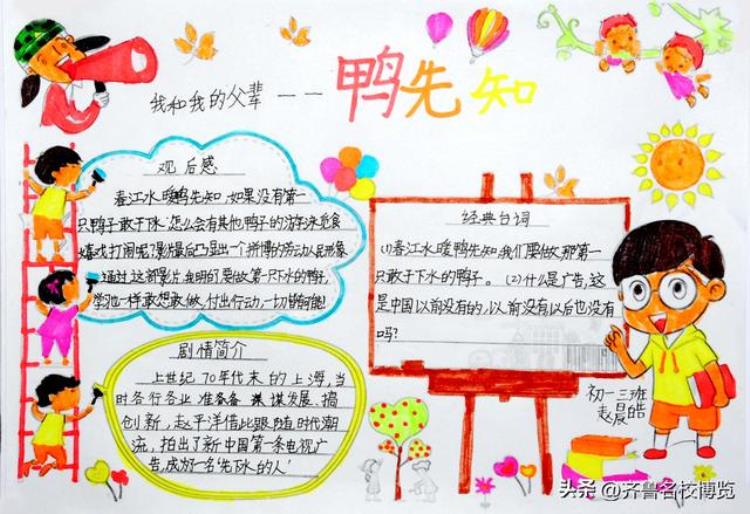 我和我的父辈——鸭先知
观后感
春江水暖鸭先知,如果没有第一
只鸭子敢于下水,怎么会有其他鸭子的游泳觅食
嬉戏打闹呢?影片最后凸显出一个拼博的劳动人民形象
通过这部影片,我明白要做第一只下水的鸭子,
学他一样敢想敢做,付出行动,一切皆有可能!
剧情简介
上世纪70年代末的上海,当
时各行各业准备谋发展、搞
创新,赵平洋借此跟随时代潮
流,拍出了新中国第一条电视广
告,成为一名'先下水的人'
经典台词
(1)春江水暖鸭先知,我们要做那第一
只敢于下水的鸭子。(2)什么是广告,这
是中国以前没有的,以前没有以后也没有
吗?
初一三班
赵晨皓
头条@齐鲁名校博览